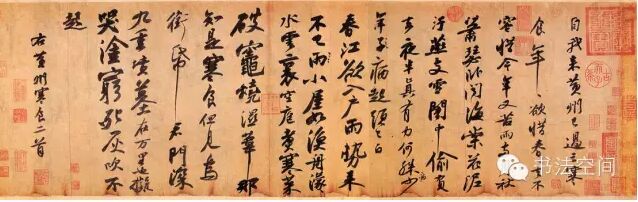 自我來黃州已過三寒
食年〻欲惜春春去不
容惜今年又苦雨兩月秋
蕭瑟臥聞海棠花泥
汙燕支雪闇中偷負
去夜半真有力何殊少
年子病起頭已白
春江欲入戶雨勢來
不已雨小屋如漁舟濛〻
水雲裏空庖煮寒菜
破竈燒濕葦那
知是寒食但見烏
銜帋君門深
九重墳墓在万里也擬
哭塗窮死灰吹不
起
右黃州寒食二首
书法空间